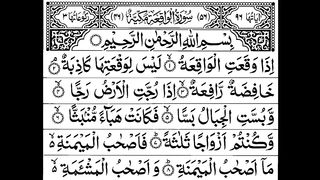 اٰيَاتُهَا ٩٦ (٥٦) سُوْرَةُ الْوَاقِعَةِ مَكِّيَّةٌ (٤٦) رُكُوْعَاتُهَا ٣
بِسْمِ اللّٰهِ الرَّحْمٰنِ الرَّحِيْمِ
اِذَا وَقَعَتِ الْوَاقِعَةُ ۙ ١ لَيْسَ لِوَقْعَتِهَا كَاذِبَةٌ ۘ ٢
خَافِضَةٌ رَّافِعَةٌ ۙ ٣ اِذَا رُجَّتِ الْاَرْضُ رَجًّا ۙ ٤
وَّبُسَّتِ الْجِبَالُ بَسًّا ۙ ٥ فَكَانَتْ هَبَآءً مُّنْۢبَثًّا ۙ ٦
وَّكُنْتُمْ اَزْوَاجًا ثَلٰثَةً ؕ ٧ فَاَصْحٰبُ الْمَيْمَنَةِ ۙ
مَاۤ اَصْحٰبُ الْمَيْمَنَةِ ؕ ٨ وَاَصْحٰبُ الْمَشْـَٔمَةِ ۙ